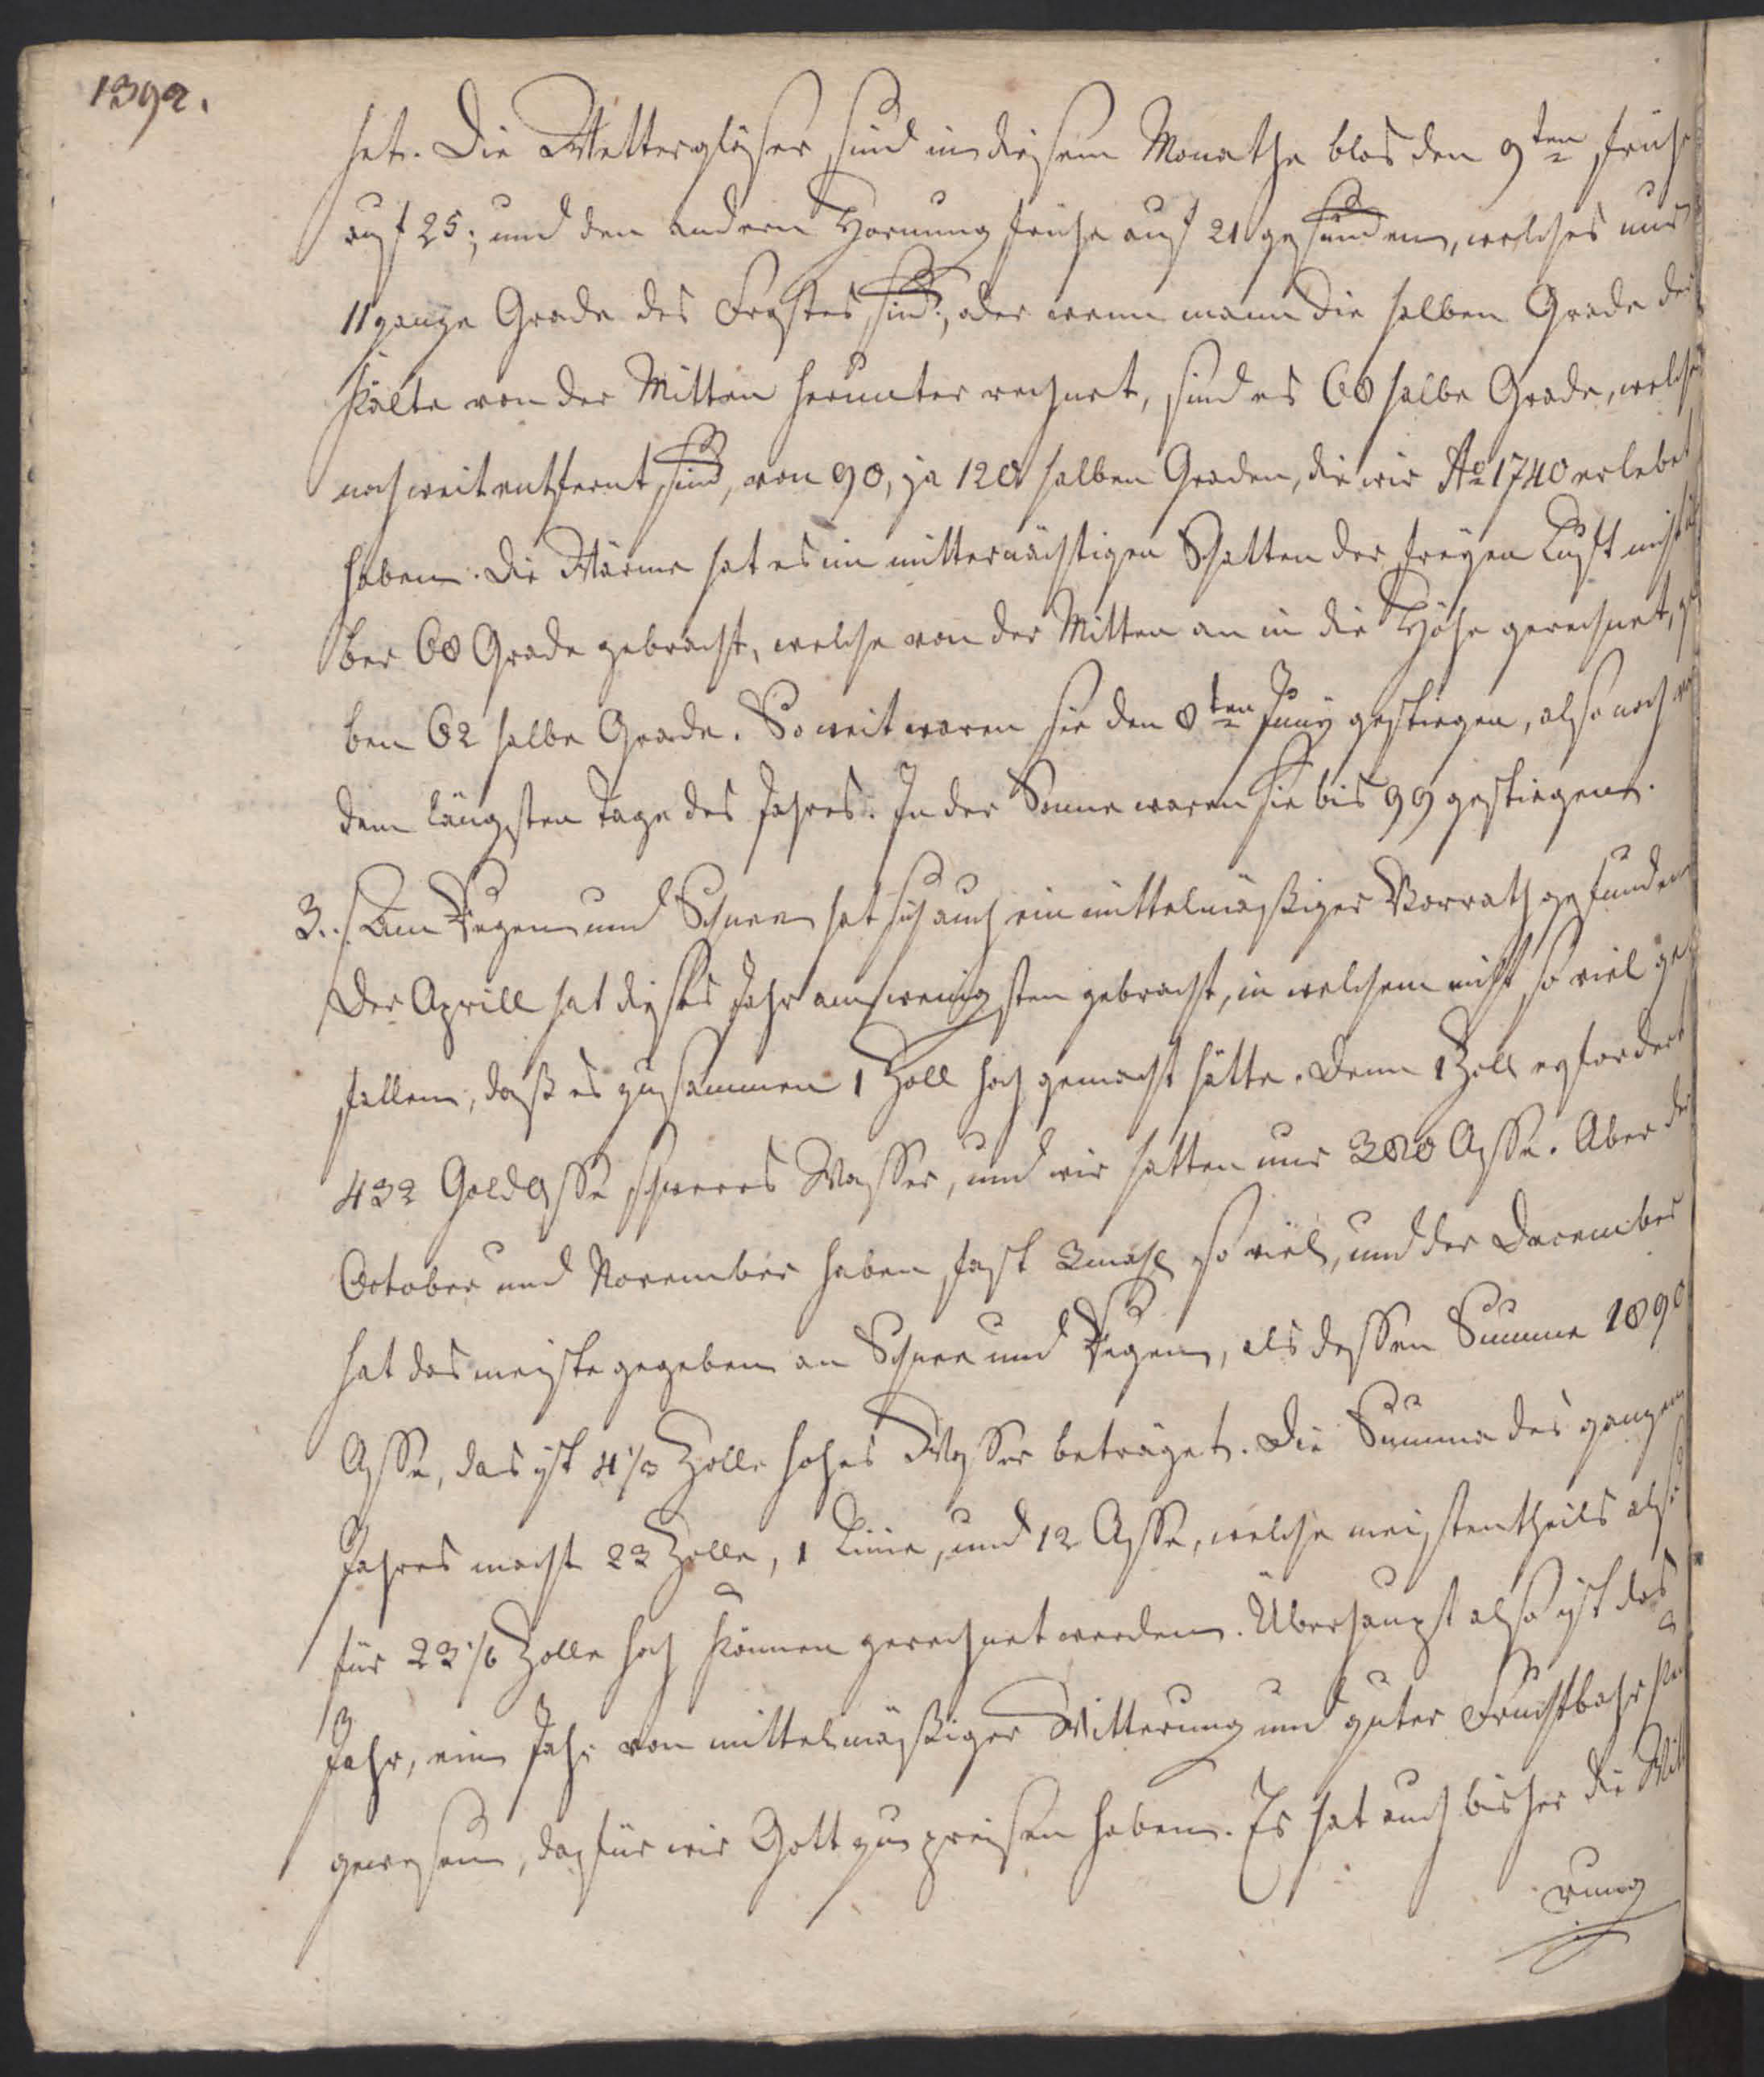 1392.
hat. Die Wettergläser sind in diesem Monathe blos den 9ten frühe
auf 25; und den andern Hornung frühe auf 21 gesunden, welches nur
11 ganze Grade des Frostes sind; oder wenn mann die halben Grade der
Kälte von der Mitten herunter rechnet, sind es 68 halbe Grade, welche
noch weit entfernt sind, von 90, ja 120 halben Graden, die wir Ao 1740 erlebet
haben. Die Wärme hat es im mitternächtigen Schatten der freyen Luft nicht ü
ber 68 Grade gebracht, welche von der Mitten an in die Höhe gerechnet, ge
ben 62 halbe Grade. So weit waren sie den 8ten Juny gestiegen, also noch vor
dem längsten Tage des Jahres. In der Sonne waren sie bis 99 gestiegen.
3. Am Regen und Schnee hat sich auch ein mittelmäßiger Vorrath gefunden
Der Aprill hat dieses Jahr am wenigsten gebracht, in welchem nicht so viel ge
fallen, daß es zusammen 1 Zoll hoch gemacht hätte. Denn 1 Zoll erfordert
432 GoldAsse schweres Wasser, und wir hatten nur 380 Asse. Aber der
October und November haben fast 3mahl so viel, und der December
hat das meiste gegeben an Schnee und Regen, als dessen Summe 1890
Asse, das ist 4 1/3 Zolle hohes Wasser beträget. Die Summe des ganzen
Jahres macht 23 Zolle, 1 Linie, und 12 Asse, welche meistentheils also
für 23 1/6 Zolle hoch können gerechnet werden. Überhaupt also ist das
Jahr, ein Jahr von mittelmäßiger Witterung und guter Fruchtbahrkeit
gewesen, dafür wir Gott zu preisen haben. Es hat auch bisher die Witt
rung